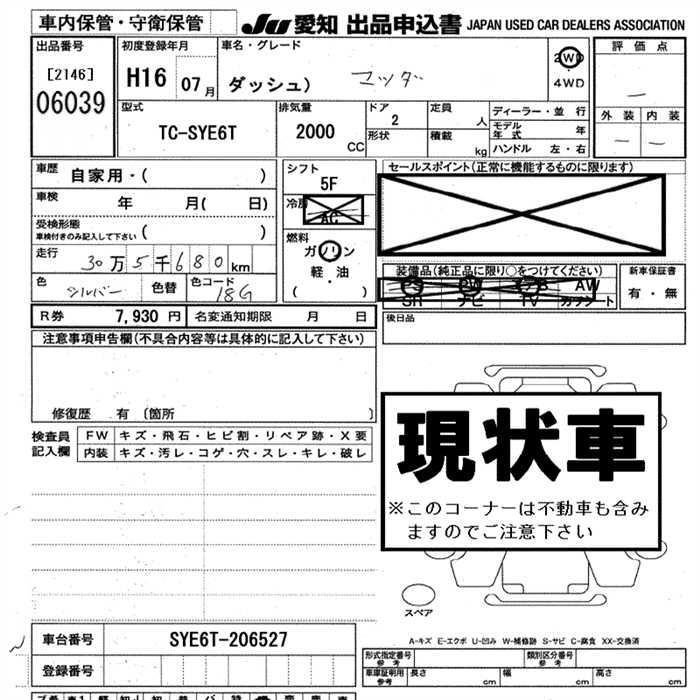 車内保管・守衛保管
JU 愛知 出品申込書 JAPAN USED CAR DEALERS ASSOCIATION
出品番号
[2146]
06039
初度登録年月
H16 07月
車名・グレード
ダッシュ) マツダ
2WD
4WD
評価点
外装 内装
型式
TC-SYE6T
排気量
2000 CC
ドア
2
形状
定員
人
積載
kg
ディーラー・並行
モデル年式 年
ハンドル 左・右
車歴 自家用・( )
車検 年 月( 日)
受検形態
車検付きのみ記入して下さい ( )
走行 30万5千680km
色 シルバー 色替 色コード 18G
シフト
5F
冷房
AC
燃料
ガソリン
軽・油
( )
セールスポイント(正常に機能するものに限ります)
装備品(純正品に限り○をつけてください)
PS PW AW
SR ナビ TV カワシート
新車保証書
有・無
R券 7,930円 名変通知期限 月 日
後日品
注意事項申告欄(不具合内容等は具体的に記入して下さい)
修復歴 有〔箇所 〕
検査員記入欄
FW キズ・飛石・ヒビ割・リペア跡・X要
内装 キズ・汚レ・コゲ・穴・スレ・キレ・破レ
現状車
※このコーナーは不動車も含み
ますのでご注意下さい
スペア
A-キズ E-エクボ U-凹み W-補修跡 S-サビ C-腐食 XX-交換済
車台番号 SYE6T-206527
登録番号
形式指定番号 参考
類別区分番号 参考
車庫証明用 参考 長さ cm 幅 cm 高さ cm